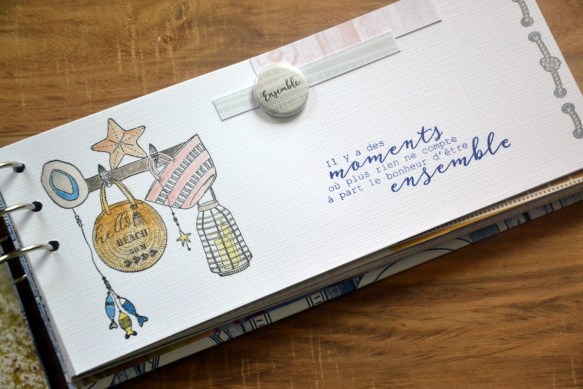 Ensemble
Il y a des
moments
où plus rien ne compte
à part le bonheur d'être
ensemble
hello
BEACH
50 M